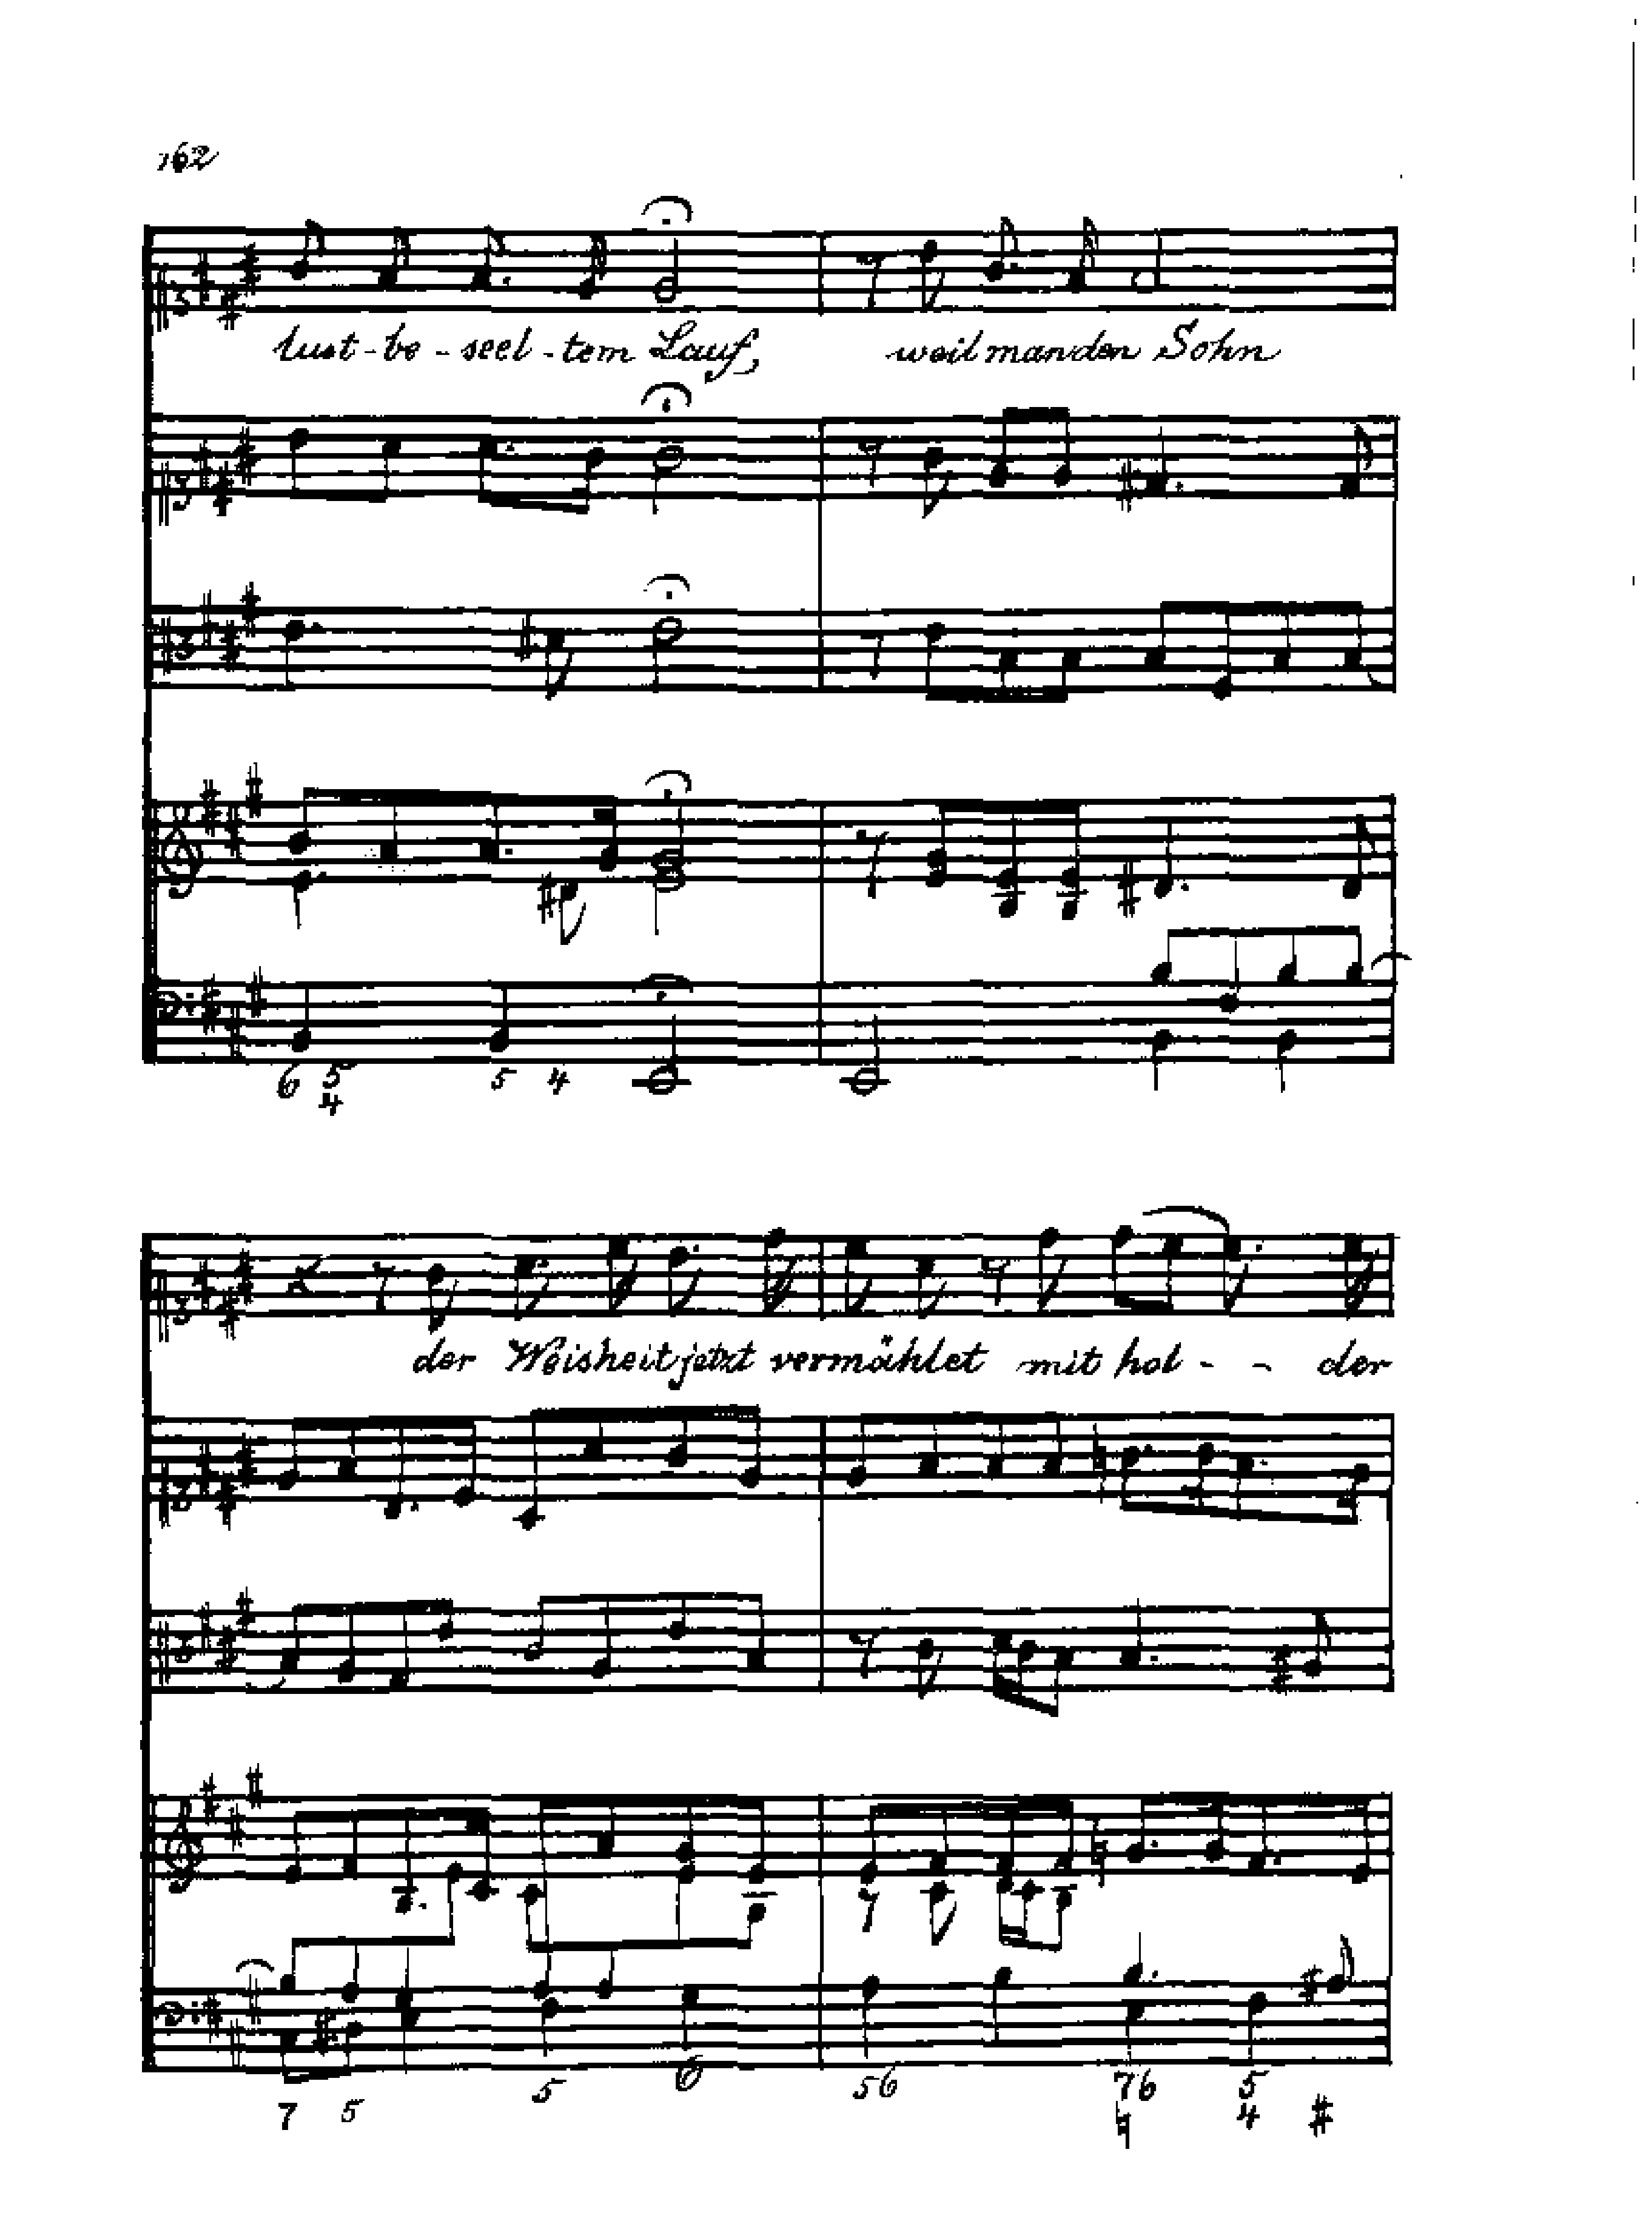 162
lust-be-seel-tem Lauf, weil man den Sohn
6 5 5 4
4
der Weisheit jetzt vermählet mit hol - - der
7 5 5 6 5 6 7 6 5
♮ 4 #